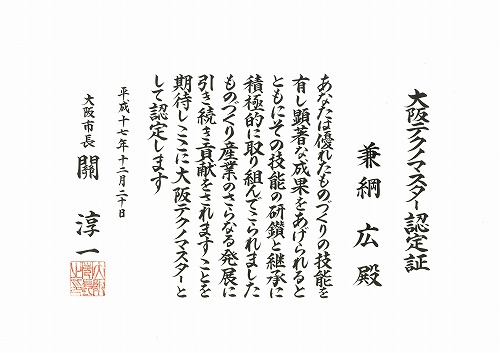 大阪テクノマスター認定証
兼綱広殿
あなたは優れたものづくりの技能を
有し顕著な成果をあげられると
ともにその技能の研鑽と継承に
積極的に取り組んでこられました
ものづくり産業のさらなる発展に
引き続き貢献をされますことを
期待しここに大阪テクノマスターと
して認定します
平成十七年十二月二十日
大阪市長 關淳一